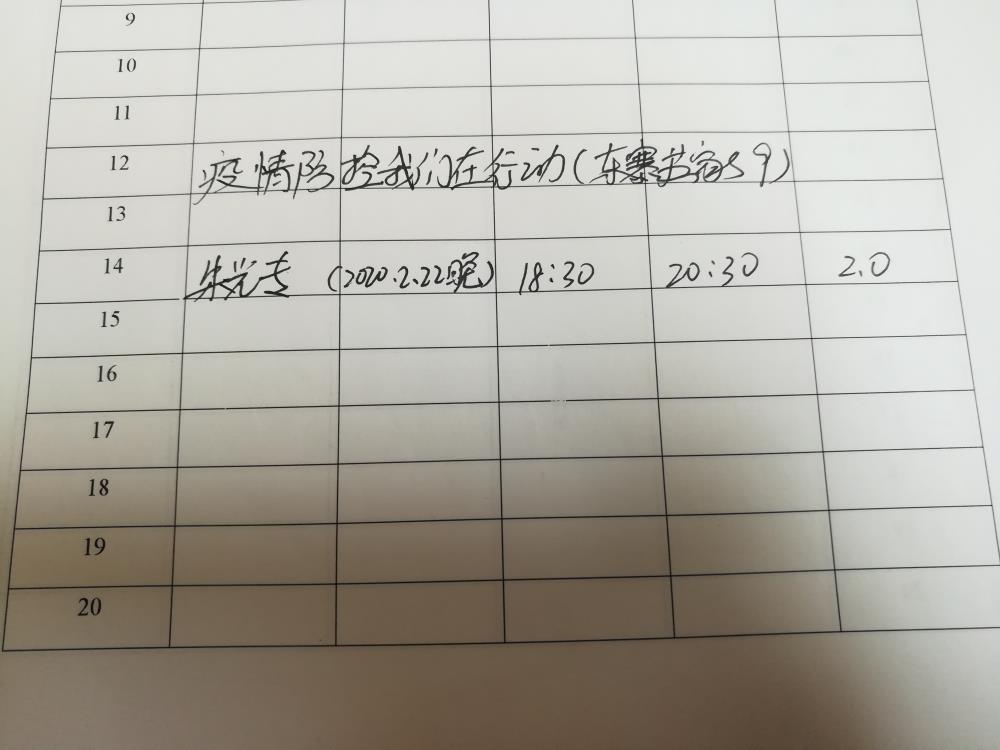 9
10
11
12 疫情防控我们在行动(东寨
13
14 朱光 (2020.2.22晚) 18:30 20:30 2.0
15
16
17
18
19
20